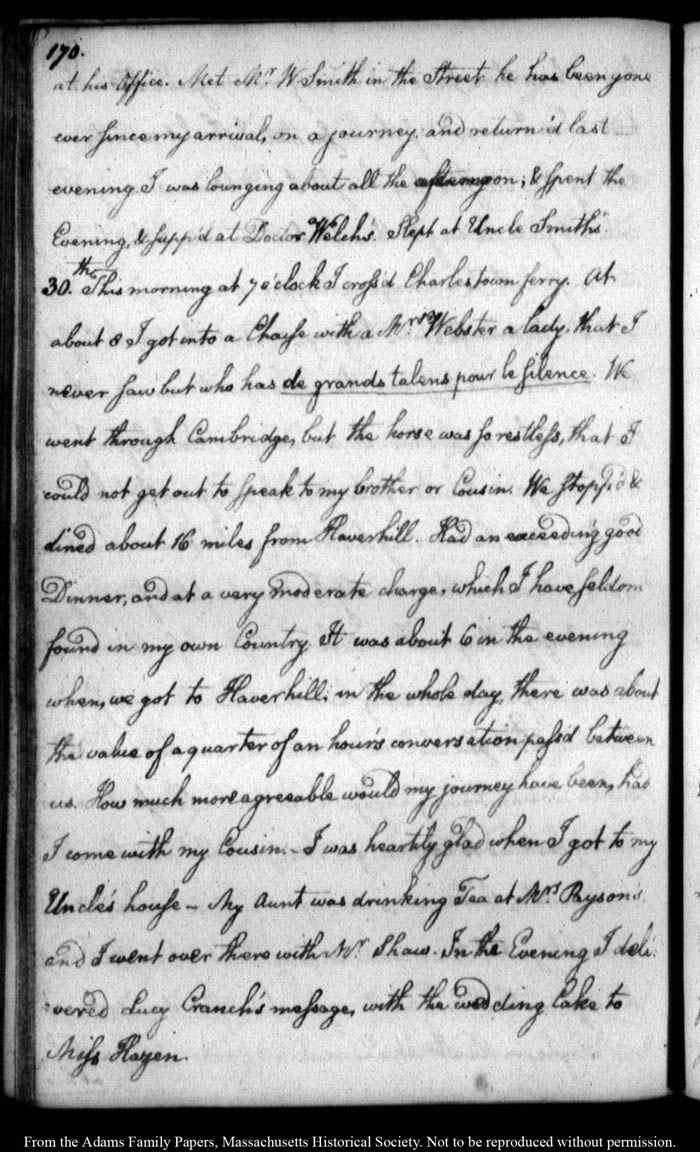 170.
at his Office. Met Mr. W. Smith in the Street he has been gone
ever since my arrival, on a journey: and return'd last
evening. I was lounging about all the afternoon; & spent the
Evening, & supp'd at Doctor Welch's. Slept at Uncle Smith's.
30.th This morning at 7 o'clock I cross'd Charlestown ferry. At
about 8 I got into a Chaise with a Mrs. Webster a lady, that I
never saw but who has de grands talens pour le silence. We
went through Cambridge, but the horse was so restless, that I
could not get out to speak to my brother or Cousin. We stopp'd &
dined about 16 miles from Haverhill. Had an exceeding good
Dinner, and at a very moderate charge, which I have seldom
found in my own Country. It was about 6 in the evening
when, we got to Haverhill; in the whole day, there was about
the value of a quarter of an hour's conversation pass'd between
us. How much more agreeable would my journey have been, had
I come with my Cousin. - I was heartily glad when I got to my
Uncle's house - My Aunt was drinking Tea at Mrs. Payson's
and I went over there with Mr. Shaw. In the Evening I deli:
:vered Lucy Cranch's message, with the wedding Cake to
Miss Hazen.
From the Adams Family Papers, Massachusetts Historical Society. Not to be reproduced without permission.